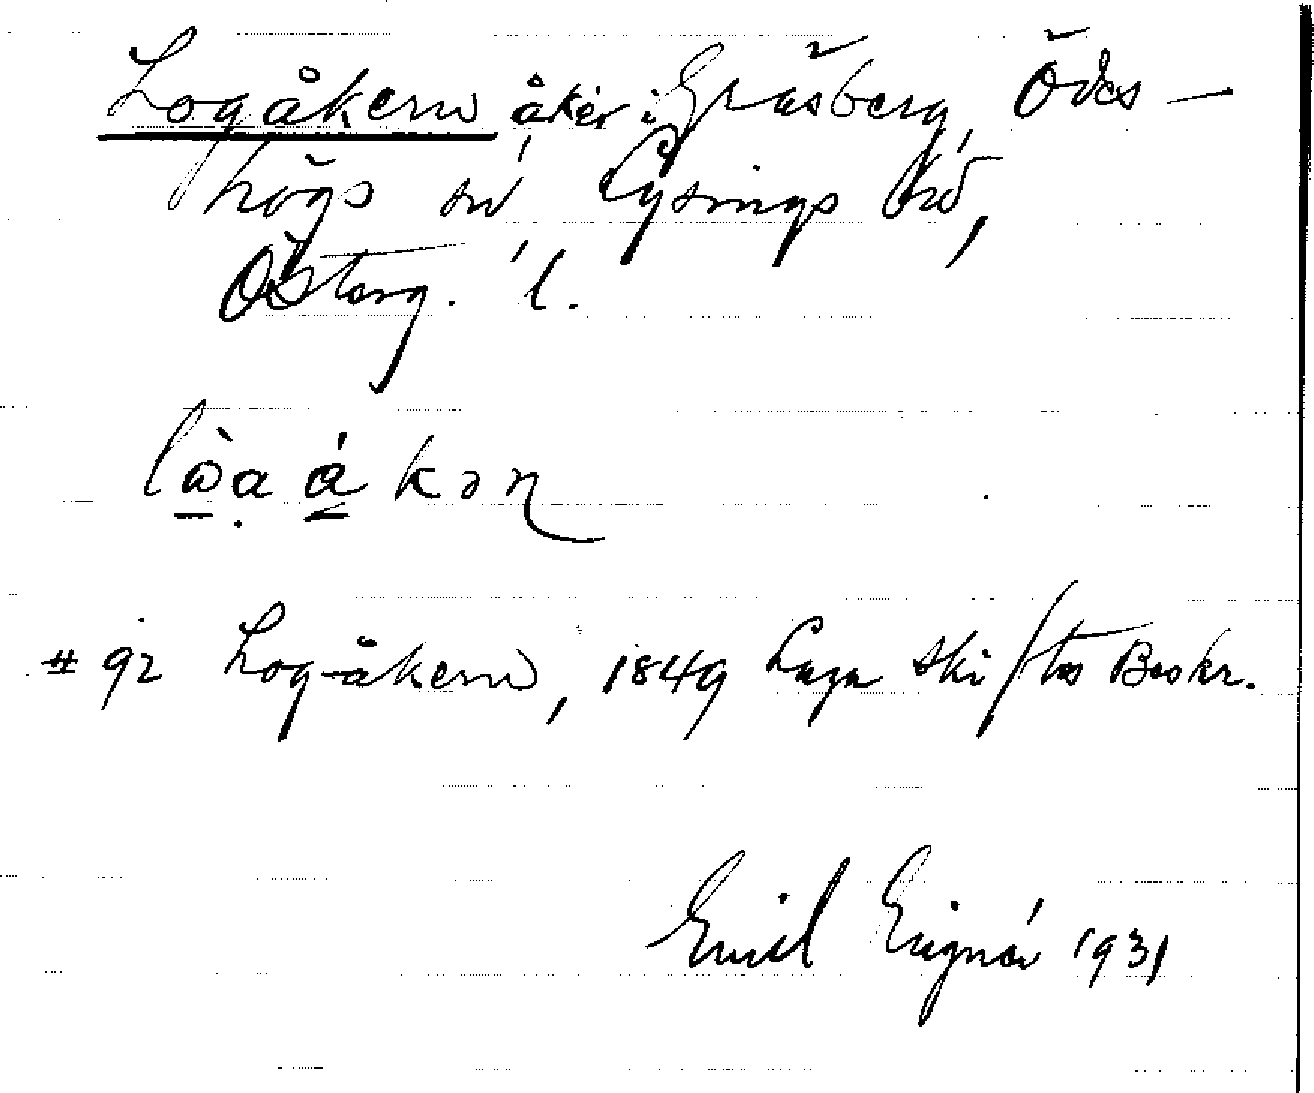 Logåkern åker i Gräsberg, Ödes-
högs sn Lysings hd,
Österg. l.
lɷ̀a ákən
# 92 Log-åkern, 1849 Laga Skiftes Beskr.
Emil 1931